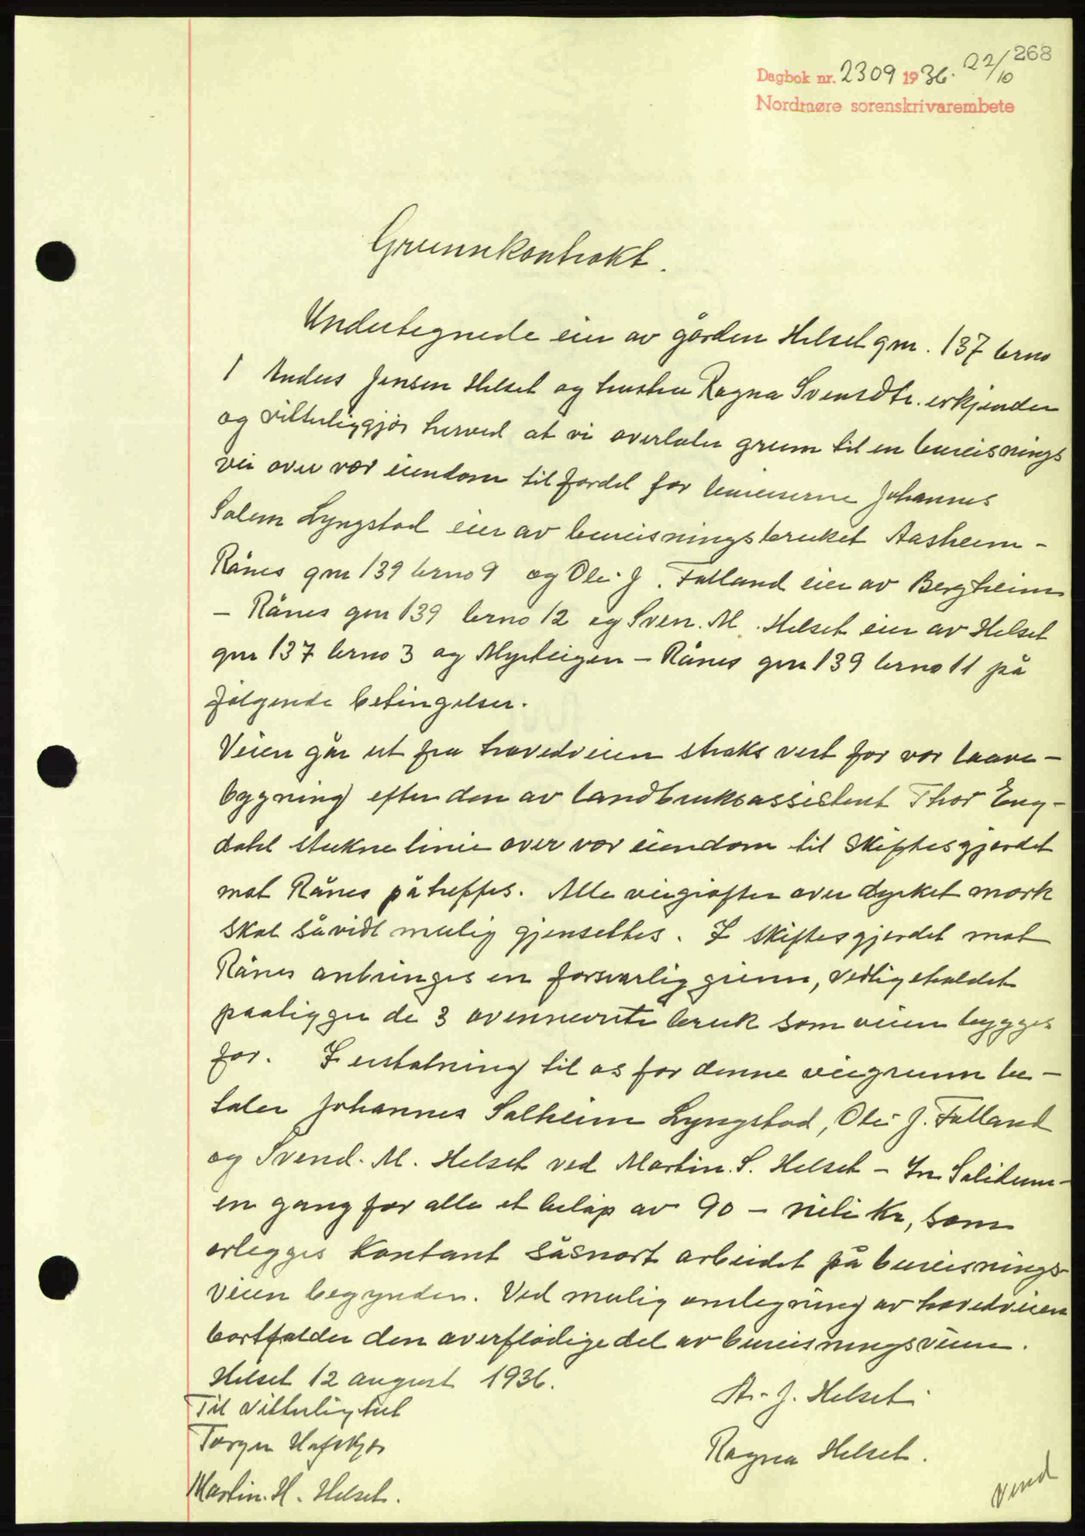 268
Dagbok nr. 2309 1936. 22/10
Nordmøre sorenskrivarembete
Grunnkontrakt.
Undertegnede eier av gården Helset gnr. 137 brno
1 Anders Jensen Helset og hustru Ragna Svendsdtr. erkjender
og vitterliggjør herved at vi overlater grunn til en bureisnings
vei over vor eiendom til fordel for bureiserne Johannes
Solem Lyngstad eier av bureisningsbruket Aasheim -
Rånes gnr 139 brno 9 og Ole J. Falland eier av Bergheim
- Rånes gnr 139 brno 12 og Sven. M. Helset eier av Helset
gnr 137 brno 3 og Myrteigen - Rånes gnr 139 brno 11 på
følgende betingelser.
Veien går ut fra hovedveien straks vest for vor laave-
bygning efter den av landbruksassistent Thor Eng-
dahl stukne linie over vor eiendom til skiftesgjerdet
mot Rånes påtreffes. Alle veigrøfter over dyrket mark
skal såvidt mulig gjensettes. I skiftesgjerdet mot
Rånes anbringes en forsvarlig grinn, vedligeholdet
paaligger de 3 ovennevnte bruk som veien bygges
for. I erstatning til os for denne veigrunn be-
taler Johannes Solheim Lyngstad, Ole J. Falland
og Svend. M. Helset ved Martin. S. Helset - In Solidum -
en gang for alle et beløp av 90 - niti Kr, som
erlegges kontant såsnart arbeidet på bureisnings-
veien begynder. Ved mulig omlegning av hovedveien
bortfalder den overflødige del av bureisningsveien.
Helset 12 august 1936.
Til vitterlighet
A. J. Helset.
Torger Hafskjær
Ragna Helset.
Martin. H. Helset.
Vend